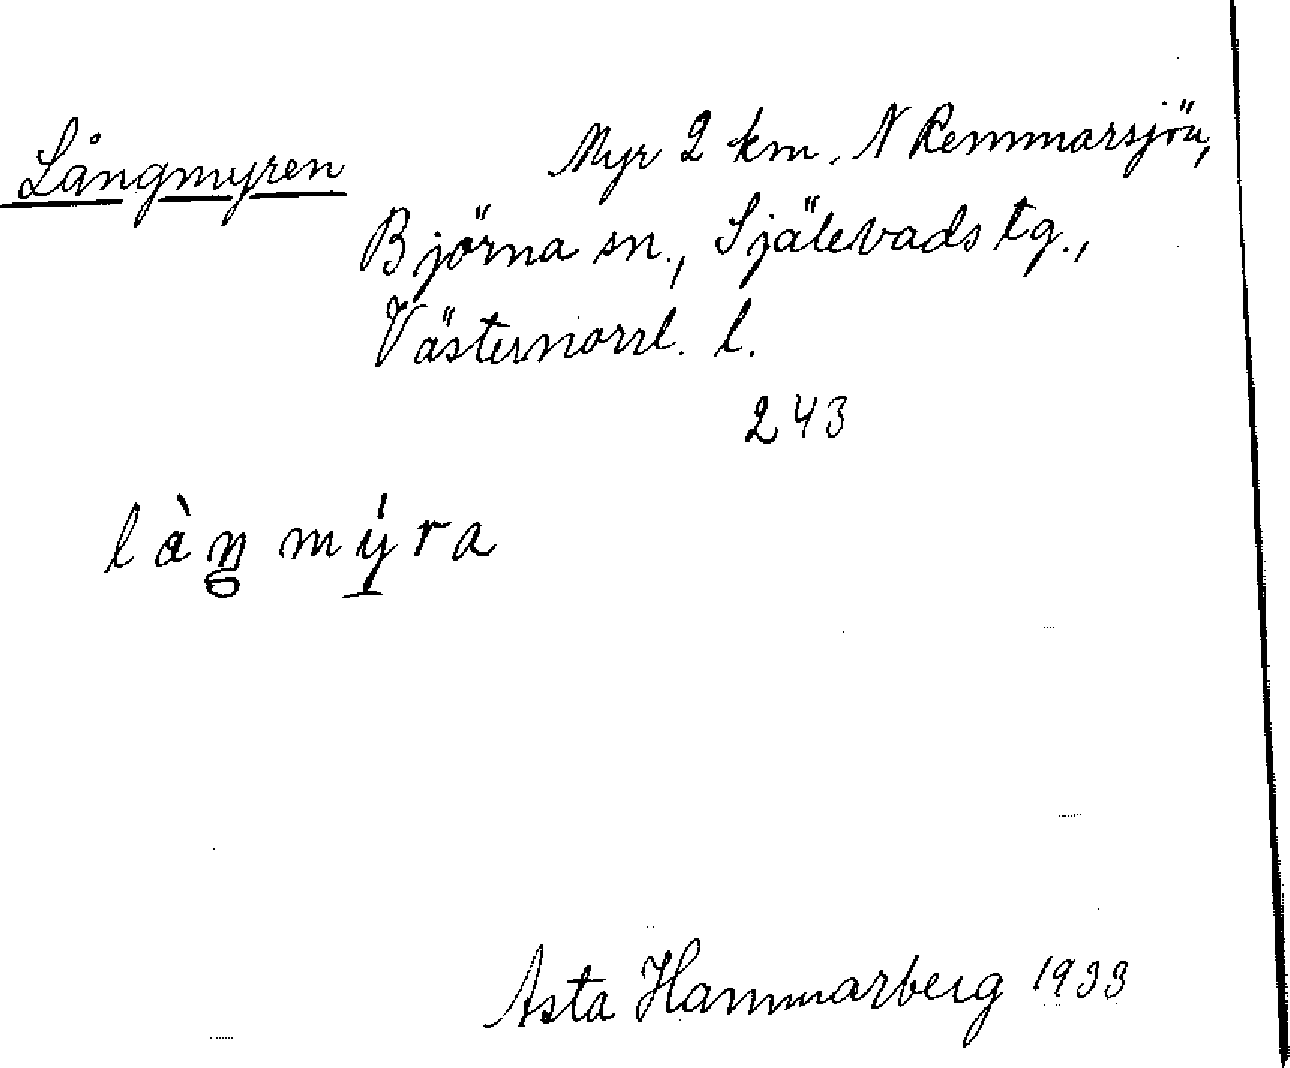 Långmyren Myr 2 km. N Remmarsjön,
Björna sn., Själevads tg.,
Västernorrl. l.
243
làŋ mý̱ra
Asta Hammarberg 1933